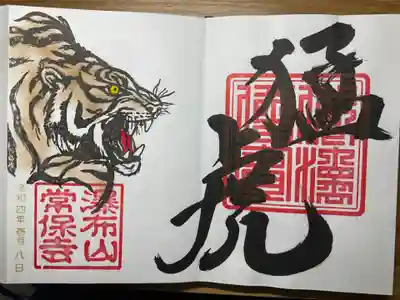 猛虎
瀑布山
常保寺
令和四年壱月八日